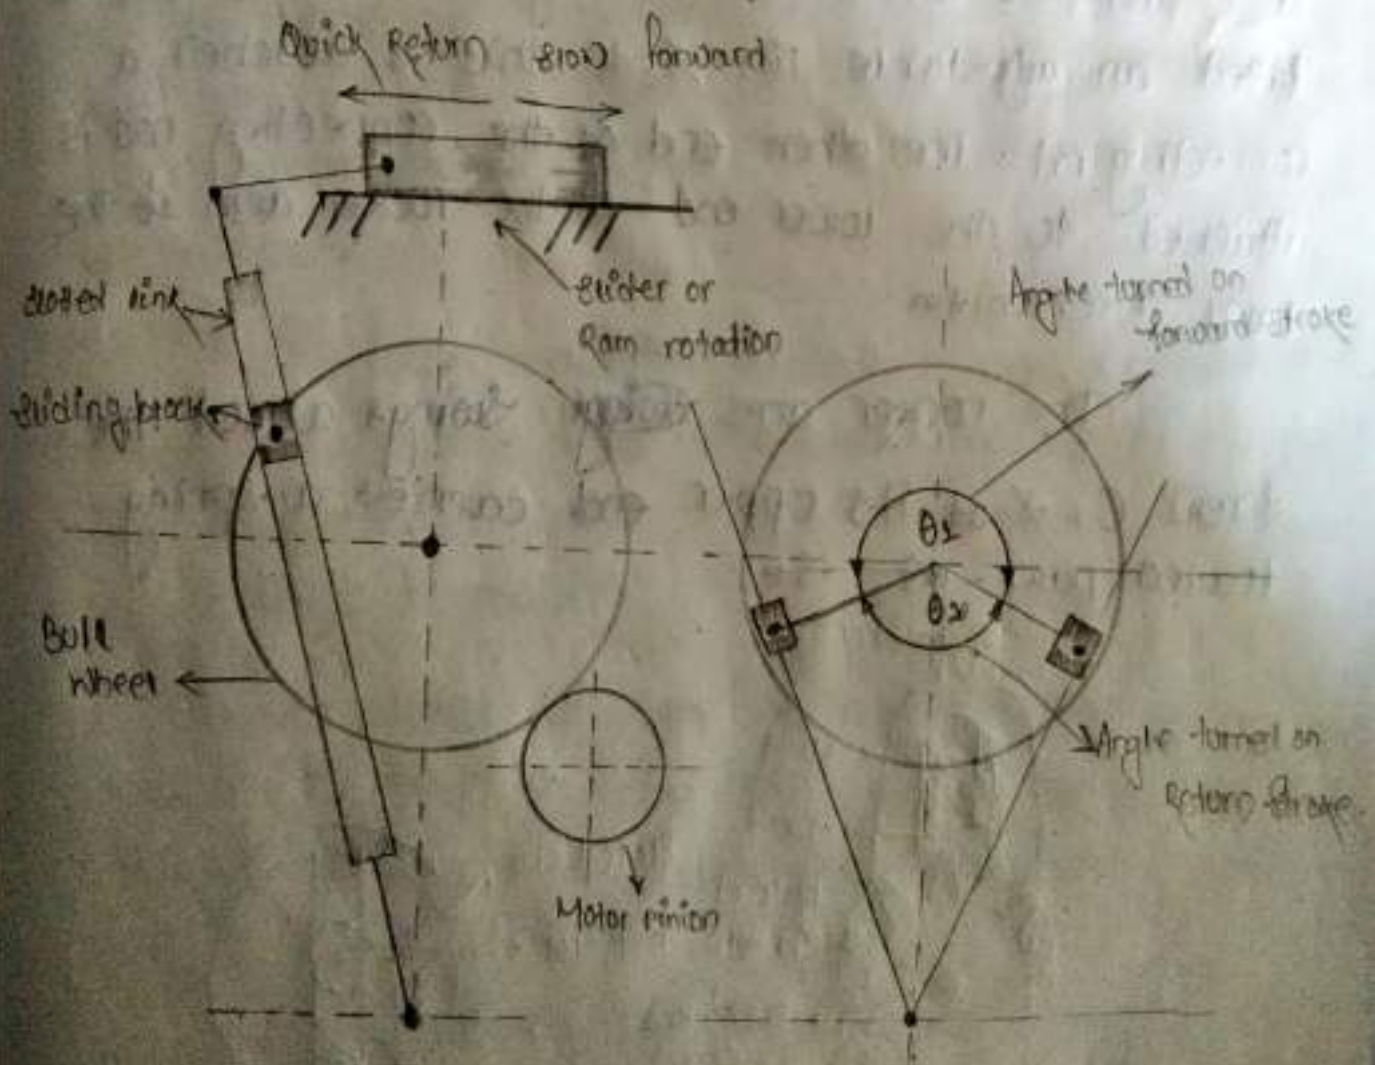 Quick Return slow forward
sloted link
slider or
Ram rotation
Angle turned on
forward stroke
sliding block
θ1
θ2
Bull
wheel
Angle turned on
Return stroke.
Motor pinion